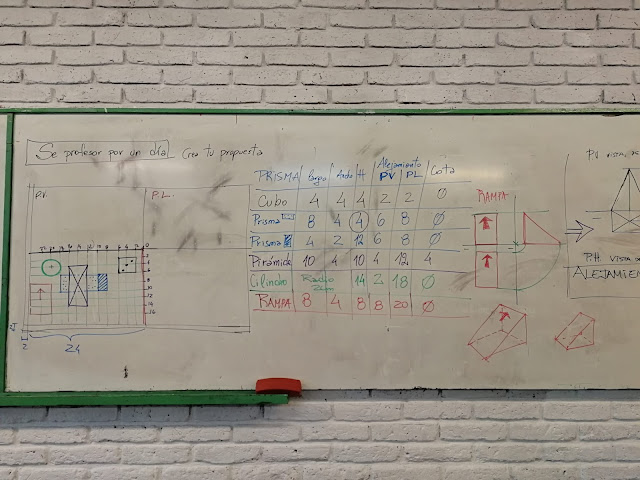 Se profesor por un día Crea tu propuesta
P.V.
P.L.
24
2
PRISMA Largo Ancho H Alejamiento PV PL Cota
Cubo 4 4 4 2 2 0
Prisma 8 4 4 6 8 0
Prisma 4 2 12 6 8 0
Piramide 10 4 10 4 12 4
Cilindro Radio 14 2 18 0
RAMPA 8 4 8 8 20 0
RAMPA
PV VISTA DE
PH VISTA DE
ALEJAMIEN